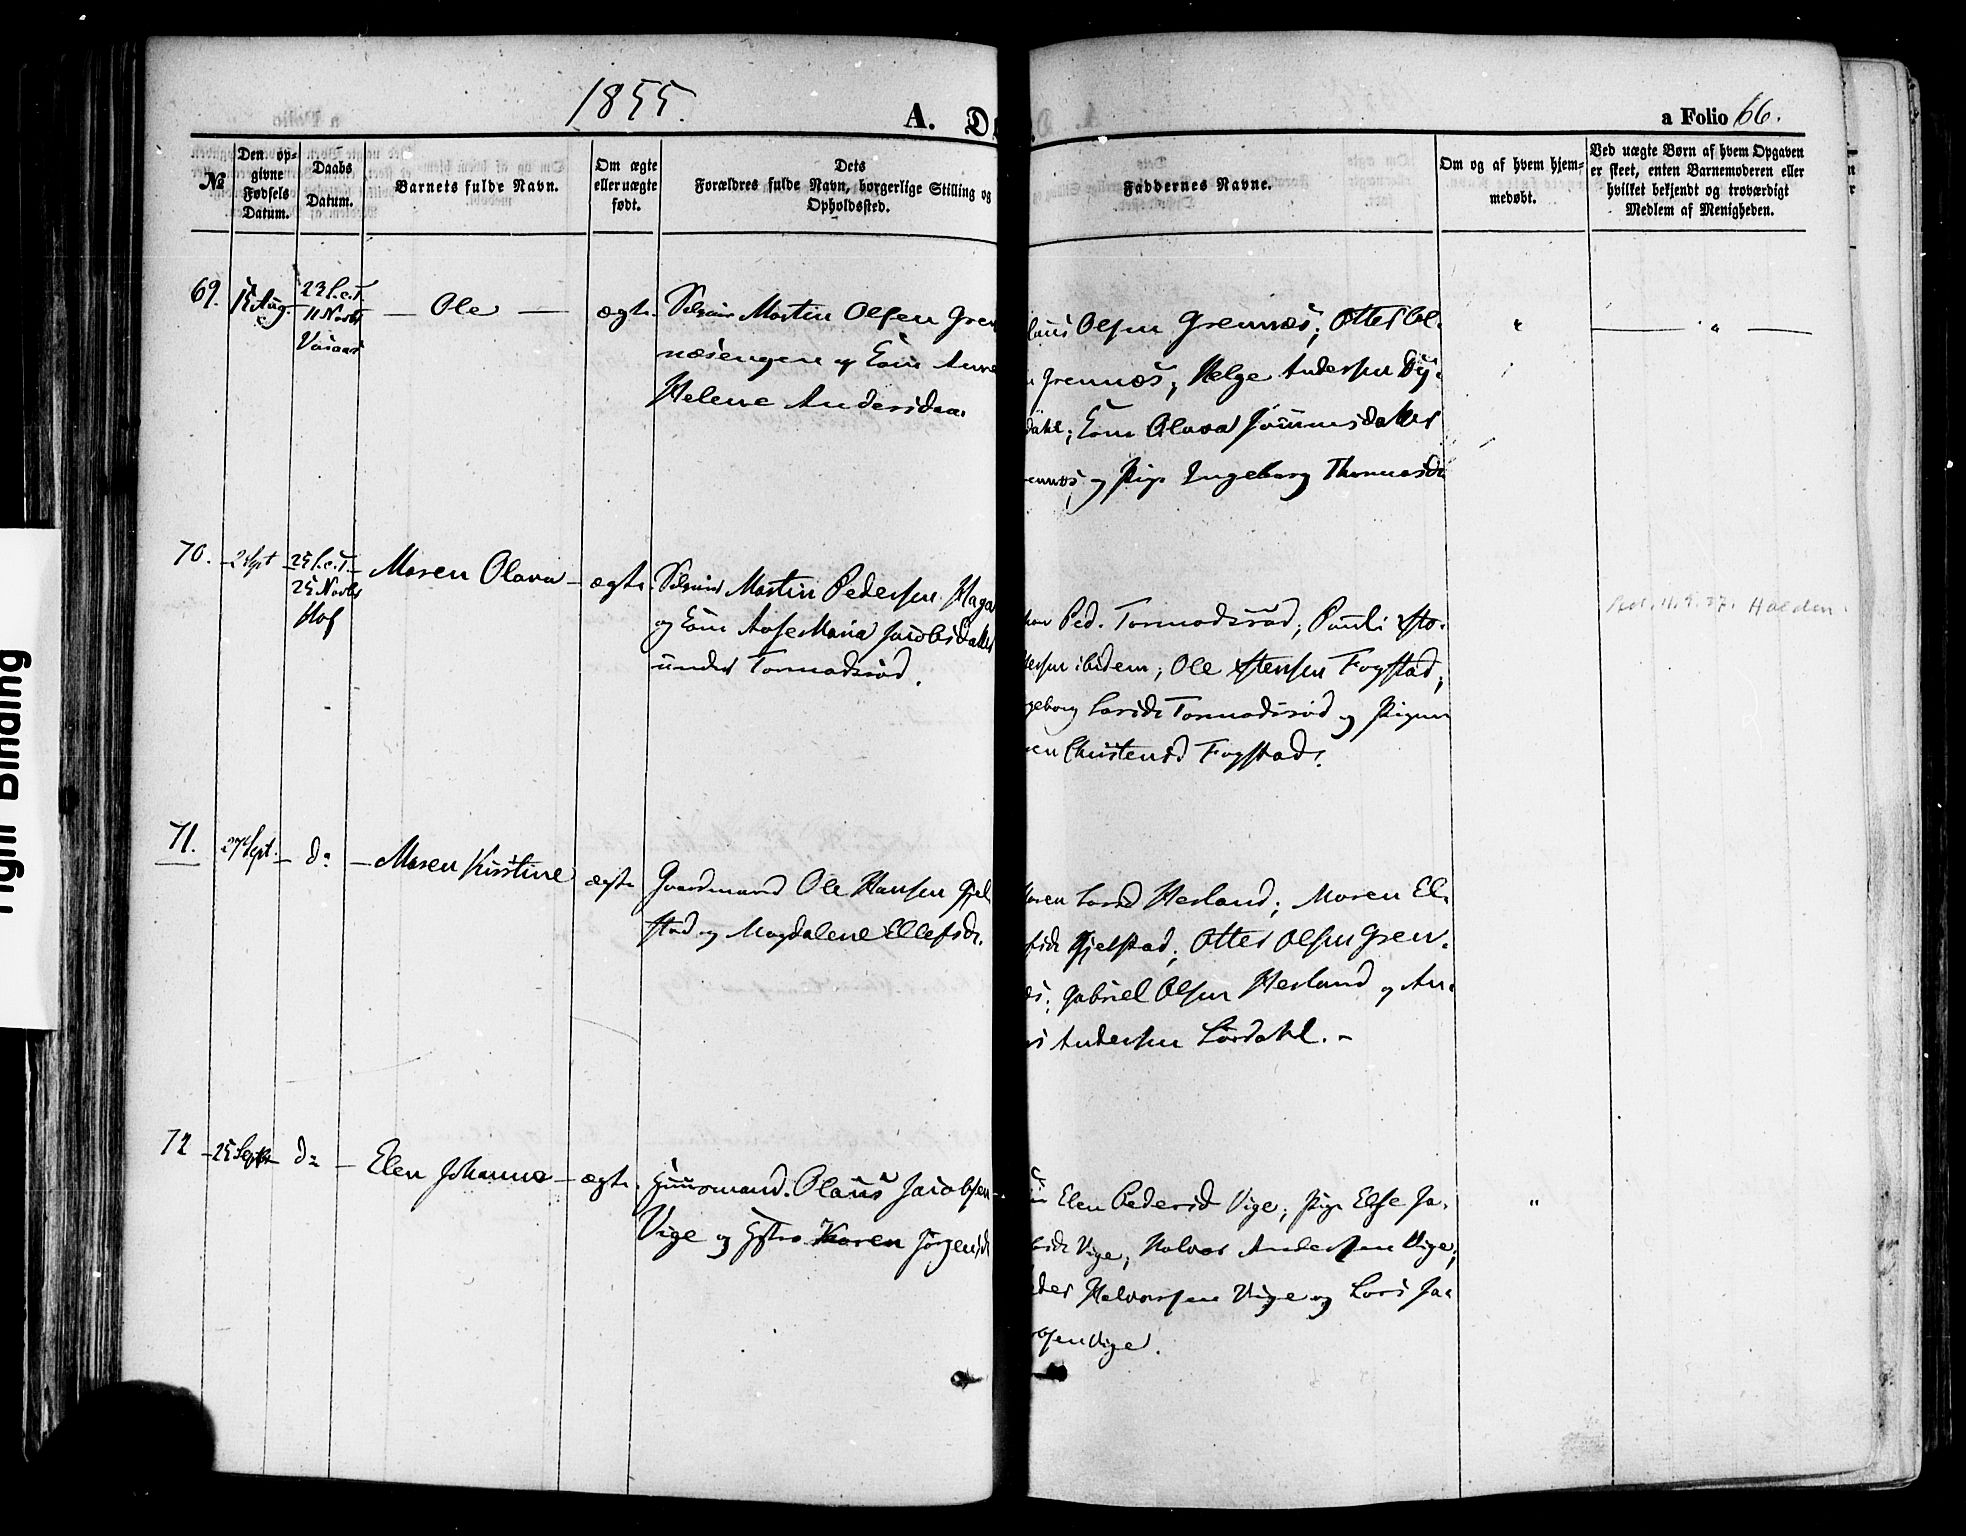 1855.
A. D
a Folio 66.
№
Den op-
givne
Fødsels
Datum.
Daabs
Datum.
Barnets fulde Navn.
Om ægte
eller uægte
født.
Dets
Forældres fulde Navn, borgerlige Stilling og
Opholdssted.
Faddernes Navne.
Om og af hvem hjem-
medøbt.
Ved uægte Børn af hvem Opgaven
er skeet, enten Barnemoderen eller
hvilket bekjendt og troværdigt
Medlem af Menigheden.
69.
15 Aug.
23 S. e. T.
11 Novbr
— Ole —
ægte.
Martin Olsen Gren
næsengen og Kone Anne
Helene Andersdaa.
laus Olsen Grennæs; Otter Ol.
Grennæs; Helge Andersen
dahl; Kone Olava
ennæs og Pige Ingeborg Thomasd
70.
2 Spt
25 S. e. T.
25 Novbr
Hof
Maren Olava
ægte.
Martin Pedersen Haga
og Kone Aase Maria Jacobsdatter
under Tormodsrød.
Ped. Tormodsrød; Pauli
ibidem; Ole Stensen Fogstad;
geborg Larsdr Tormodsrød og Pigen
en Christensd Fogstad.
Halden.
71.
27 Sept.
do
Maren Kirstine
ægte
Gaardmand Ole Hansen Gjel
stad og Magdalene Ellefsdr.
aren Larsd Herland; Maren El.
fsdr Gjelstad; Otter Olsen Gren.
æs; Gabriel Olsen Herland og An.
rs Andersen Lørdahl. -
72
25 Septbr
do
Elen Johanne
ægte.
Huusmand Olaus Jacobsen
Vige og Hstro Karen Jørgensdr
Elen Pedersd Vige; Pige Else Ja.
bsdr Vige; Halvor Andersen Vige;
eder Halvorsen Vige og Lars Ja.
obsen Vige.
"